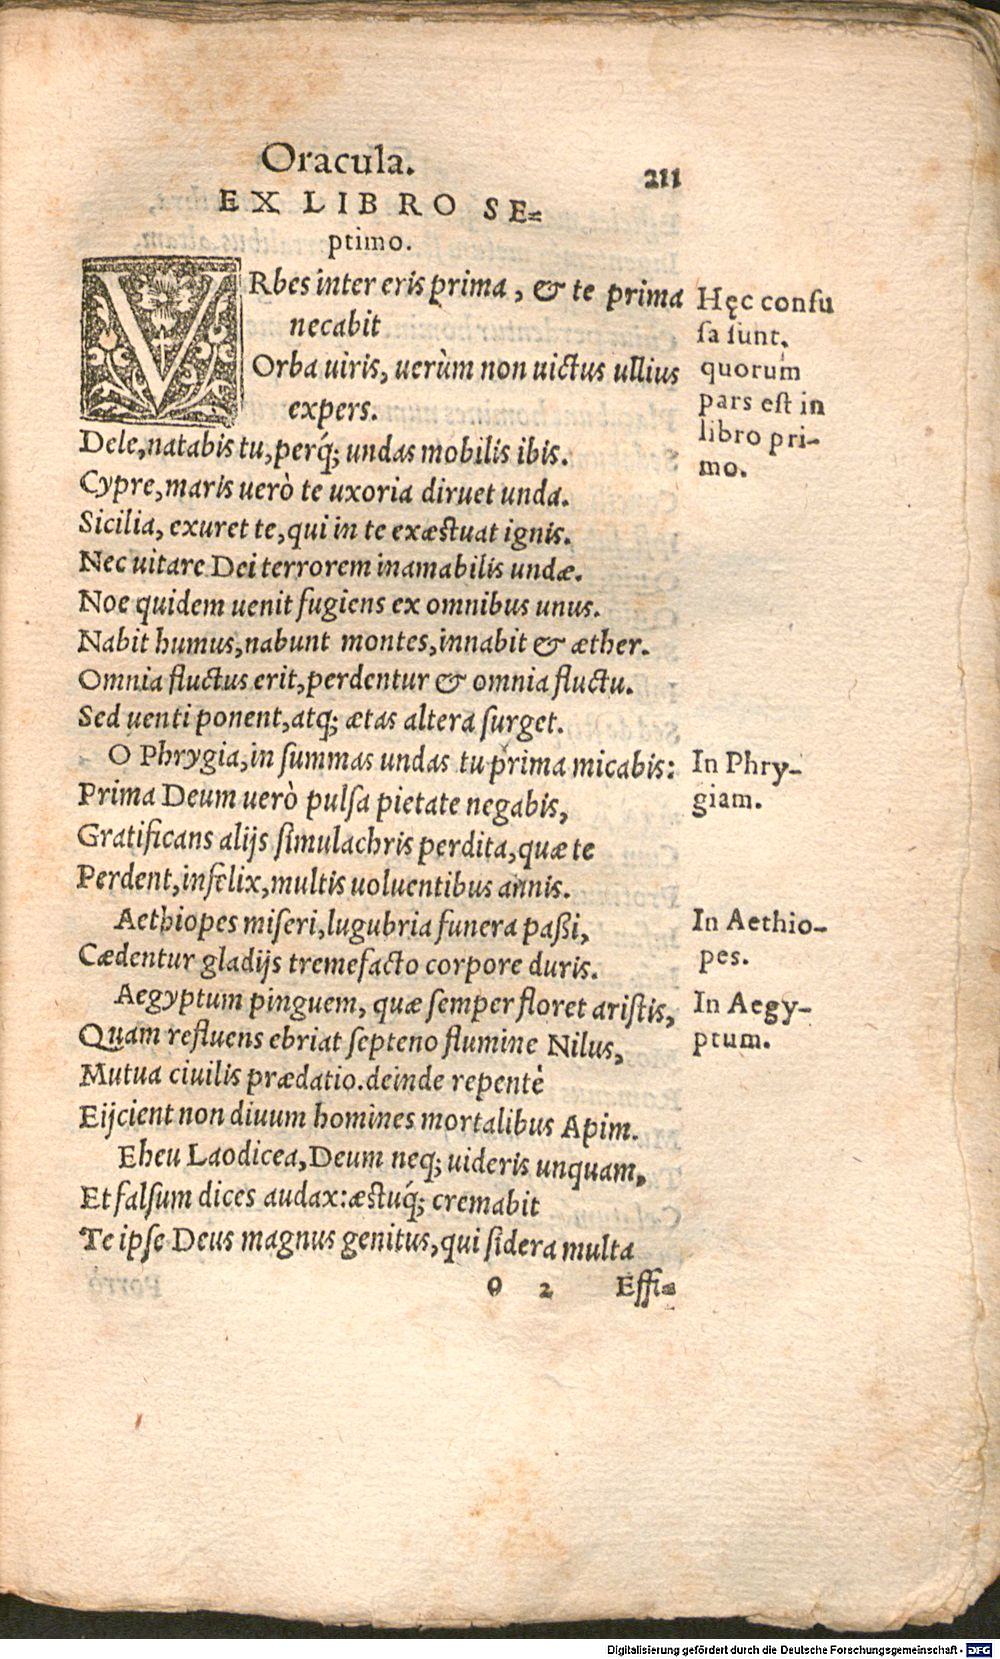 Oracula.
211
EX LIBRO SE=
ptimo.
VRbes inter eris prima, & te prima
necabit
Orba uiris, uerùm non uictus ullius
expers.
Hęc confu
sa sunt.
quorum
pars est in
libro pri-
mo.
Dele, natabis tu, perq́; undas mobilis ibis.
Cypre, maris uerò te uxoria diruet unda.
Sicilia, exuret te, qui in te exæstuat ignis.
Nec uitare Dei terrorem inamabilis undæ.
Noe quidem uenit fugiens ex omnibus unus.
Nabit humus, nabunt montes, innabit & æther.
Omnia fluctus erit, perdentur & omnia fluctu.
Sed uenti ponent, atq; ætas altera surget.
O Phrygia, in summas undas tu prima micabis:
In Phry-
giam.
Prima Deum uerò pulsa pietate negabis,
Gratificans alijs simulachris perdita, quæ te
Perdent, infelix, multis uoluentibus annis.
Aethiopes miseri, lugubria funera paßi,
In Aethio-
pes.
Cædentur gladijs tremefacto corpore duris.
Aegyptum pinguem, quæ semper floret aristis,
In Aegy-
ptum.
Quam refluens ebriat septeno flumine Nilus,
Mutua ciuilis prædatio. deinde repentè
Eijcient non diuum homines mortalibus Apim.
Eheu Laodicea, Deum neq; uideris unquam,
Et falsum dices audax: æstuq́; cremabit
Te ipse Deus magnus genitus, qui sidera multa
O 2 Effi=
Digitalisierung gefördert durch die Deutsche Forschungsgemeinschaft - DFG